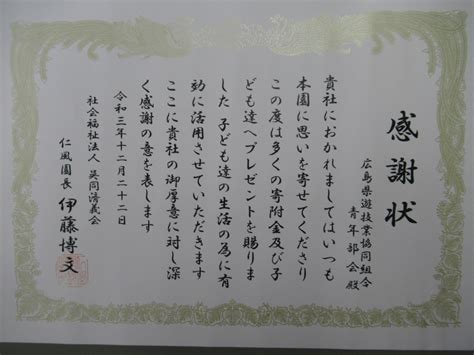 感謝状
広島県遊技業協同組合
青年部会殿
貴社におかれましてはいつも
本園に思いを寄せてくださり
この度は多くの寄附金及び子
ども達へプレゼントを賜りま
した 子ども達の生活の為に有
効に活用させていただきます
ここに貴社の御厚意に対し深
く感謝の意を表します
令和三年十二月二十二日
社会福祉法人 広島同済義会
仁風園長 伊藤博文